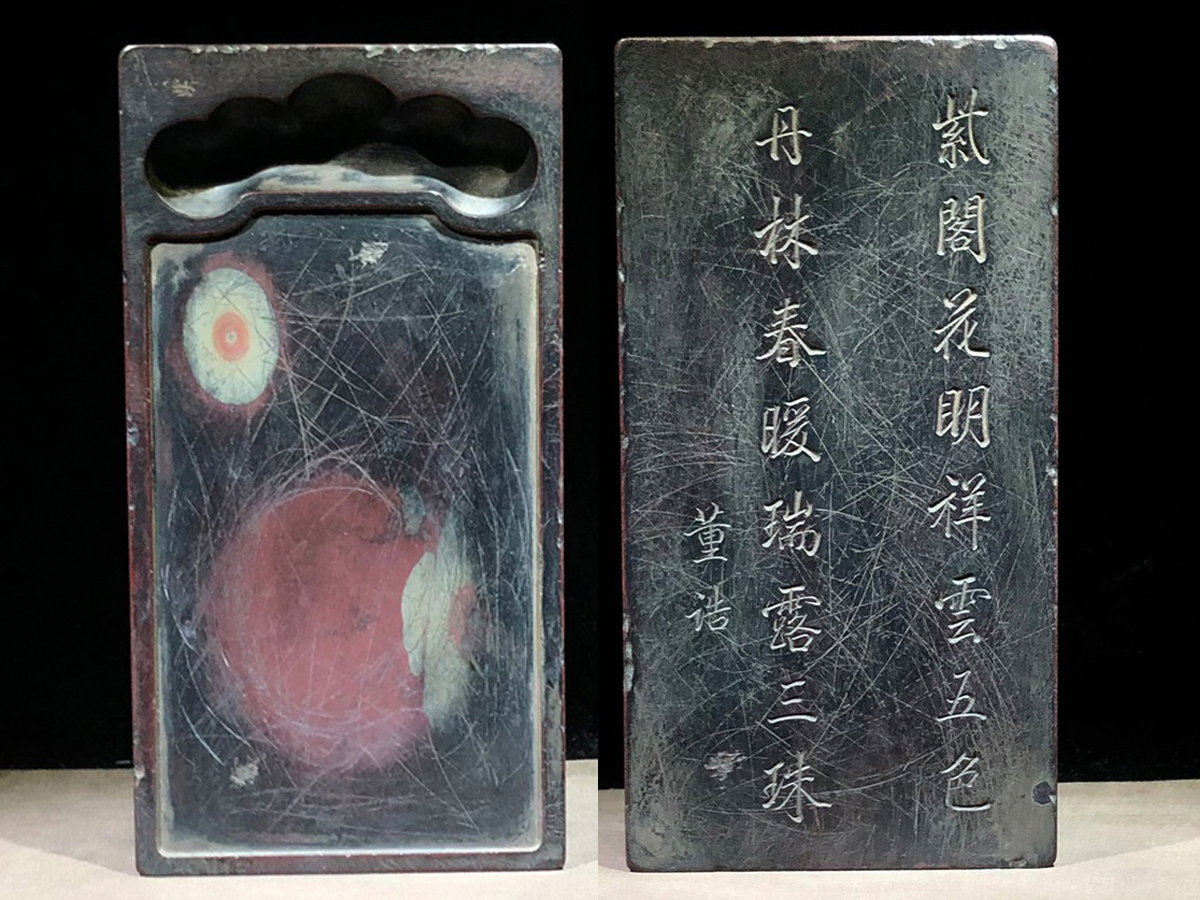 紫閣花明祥雲五色
丹林春暖瑞露三珠
董誥